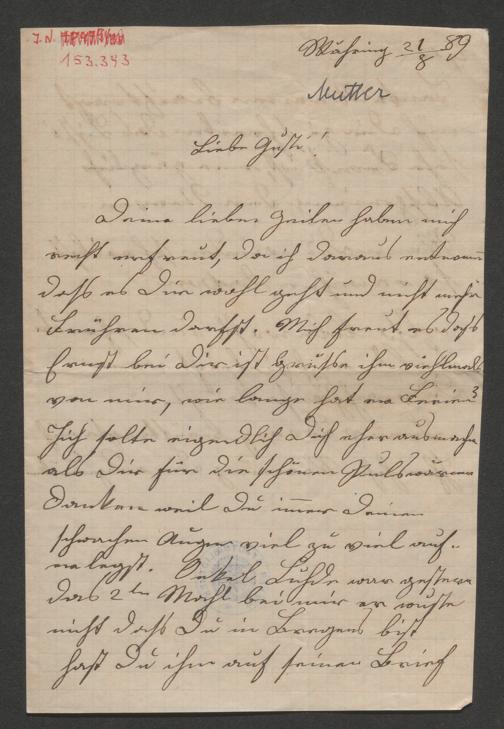 J. N.
153.343
Währing 21/8 89
Mutter
Liebe Gusti!
Deine lieben Zeilen haben mich
recht erfreut, da ich daraus entnom
dass es Dir wohl geht und nicht mehr
darfst. Mich freut es dass
Ernst bei Dir ist grüsse ihn viehlmals
von mir, wie lange hat er Ferien?
Ich solte eigendlich Dich eher ausmachen
als Dir für die schönen Pulswärmer
danken weil Du immer Deinen
schwachen Augen viel zu viel auf-
erlegst. Onkel war gestern
das 2te Mahl bei mir er wusste
nicht dass Du in Bregenz bist
hast Du ihm auf seinen Brief